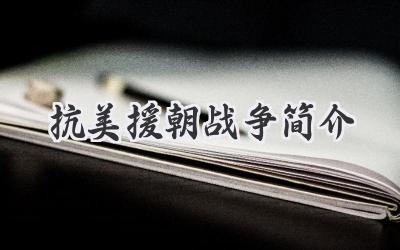 抗美援朝战争简介